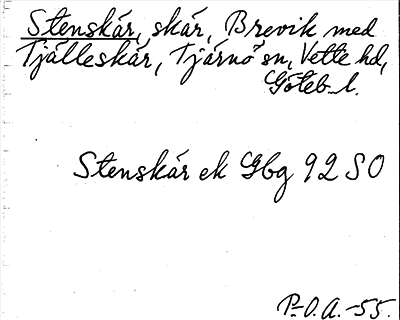 Stenskär, skär, Brevik med
Tjälleskär, Tjärnö sn, Vette hd,
Göteb. l.
Stenskär ek Gbg 92 SO
P.-O. A. -55.